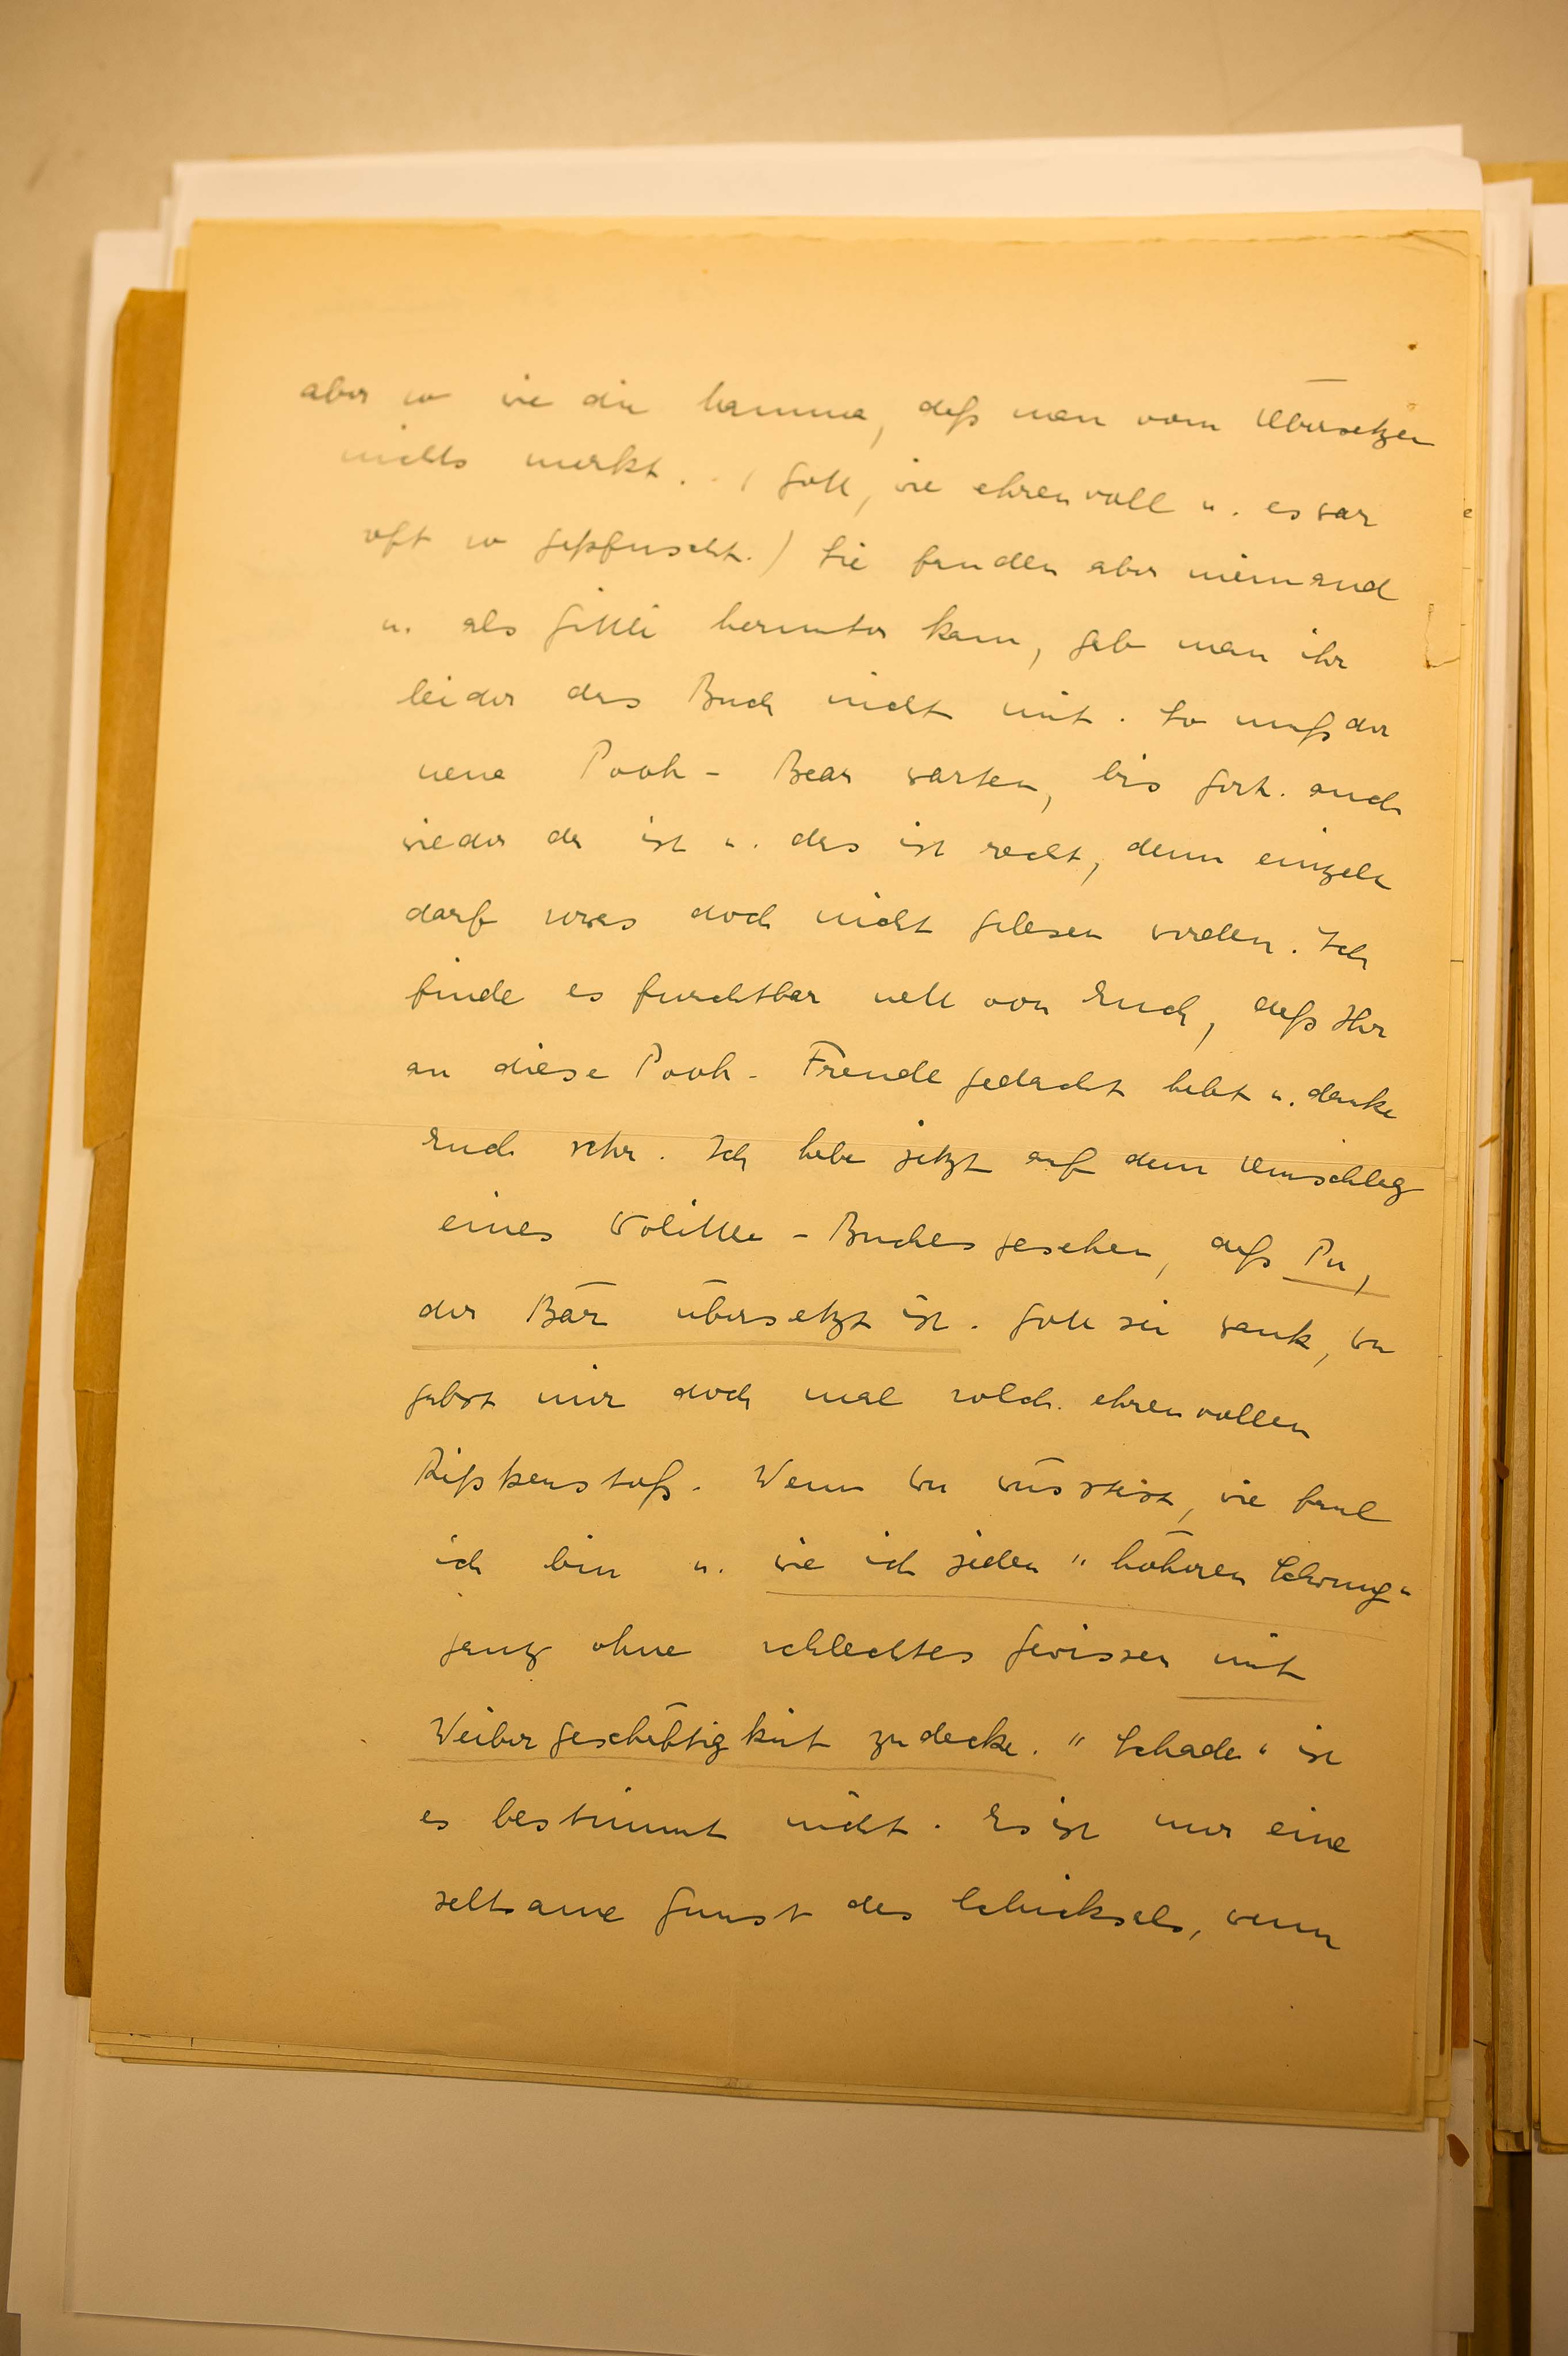 aber so wie die Mamma, daß man vom Übersetzen
nichts merkt. . (Gott, wie ehrenvoll u. es war
oft so gepfuscht.) Sie fanden aber niemand
u. als Gittli herunter kam, gab man ihr
leider das Buch nicht mit. So muß der
neue Pooh - Bear warten, bis Gert. auch
wieder da ist u. das ist recht, denn einzeln
darf sowas doch nicht gelesen werden. Ich
finde es furchtbar nett von Euch, daß Ihr
an diese Pooh - Freude gedacht habt u. danke
Euch sehr. Ich habe jetzt auf dem Umschlag
eines Dolittle - Buches gesehen, daß Pu,
der Bär übersetzt ist. Gott sei Dank, Du
gabst mir doch mal solch. ehrenvollen
Rippenstoß. Wenn Du wüsstest, wie faul
ich bin u. wie ich jeden "höheren Schwung"
ganz ohne schlechtes Gewissen mit
Weibergeschäftigkeit zudecke. "Schade" ist
es bestimmt nicht. Es ist nur eine
seltsame Gunst des Schicksals, wenn